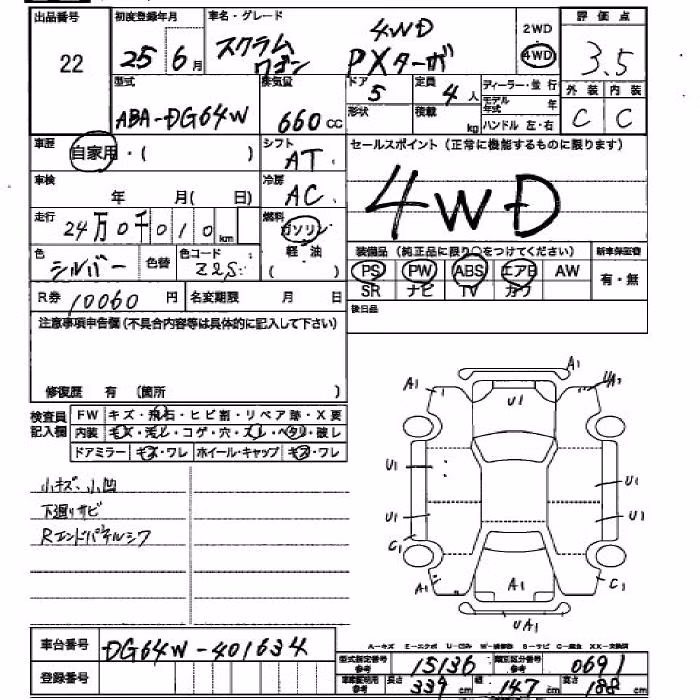 出品番号 初度登録年月 車名・グレード 2WD 評価点
22 25 6月 スクラムワゴン 4WD PXターボ 4WD 3.5
型式 排気量 ドア 定員 ディーラー・並行 外装 内装
ABA-DG64W 660cc 5 4人 モデル年式 年 C C
形状 積載 kg ハンドル 左・右
車歴 自家用・( ) シフト AT セールスポイント (正常に機能するものに限ります)
車検 年 月( 日) 冷房 AC 4WD
走行 24万0千010km 燃料 ガソリン 軽油 ( )
色 シルバー 色替 色コード Z2S 装備品 (純正品に限り○をつけてください) 新車保証書
PS PW ABS エアB AW 有・無
R券 10060円 名変期限 月 日 SR ナビ TV カワ
注意事項申告欄 (不具合内容等は具体的に記入して下さい) 後日品
修復歴 有 (箇所 )
検査員記入欄 FW キズ・飛石・ヒビ割・リペア跡・X要
内装 キズ・汚レ・コゲ・穴・スレ・ヘタリ・破レ
ドアミラー キズ・ワレ ホイール・キャップ キズ・ワレ
小キズ、小凹
下廻リサビ
Rエンドパネルシワ
A1
A1 U1
U1 U1
U1 U1
C1 C1
A1 A1
UA1
A-キズ E-エクボ U-凹ミ
車台番号 DG64W-401634
登録番号
型式指定番号 参考 15136 類別区分番号 参考 0691
車庫証明用 参考 長さ 339cm 幅 147cm 高さ 188cm